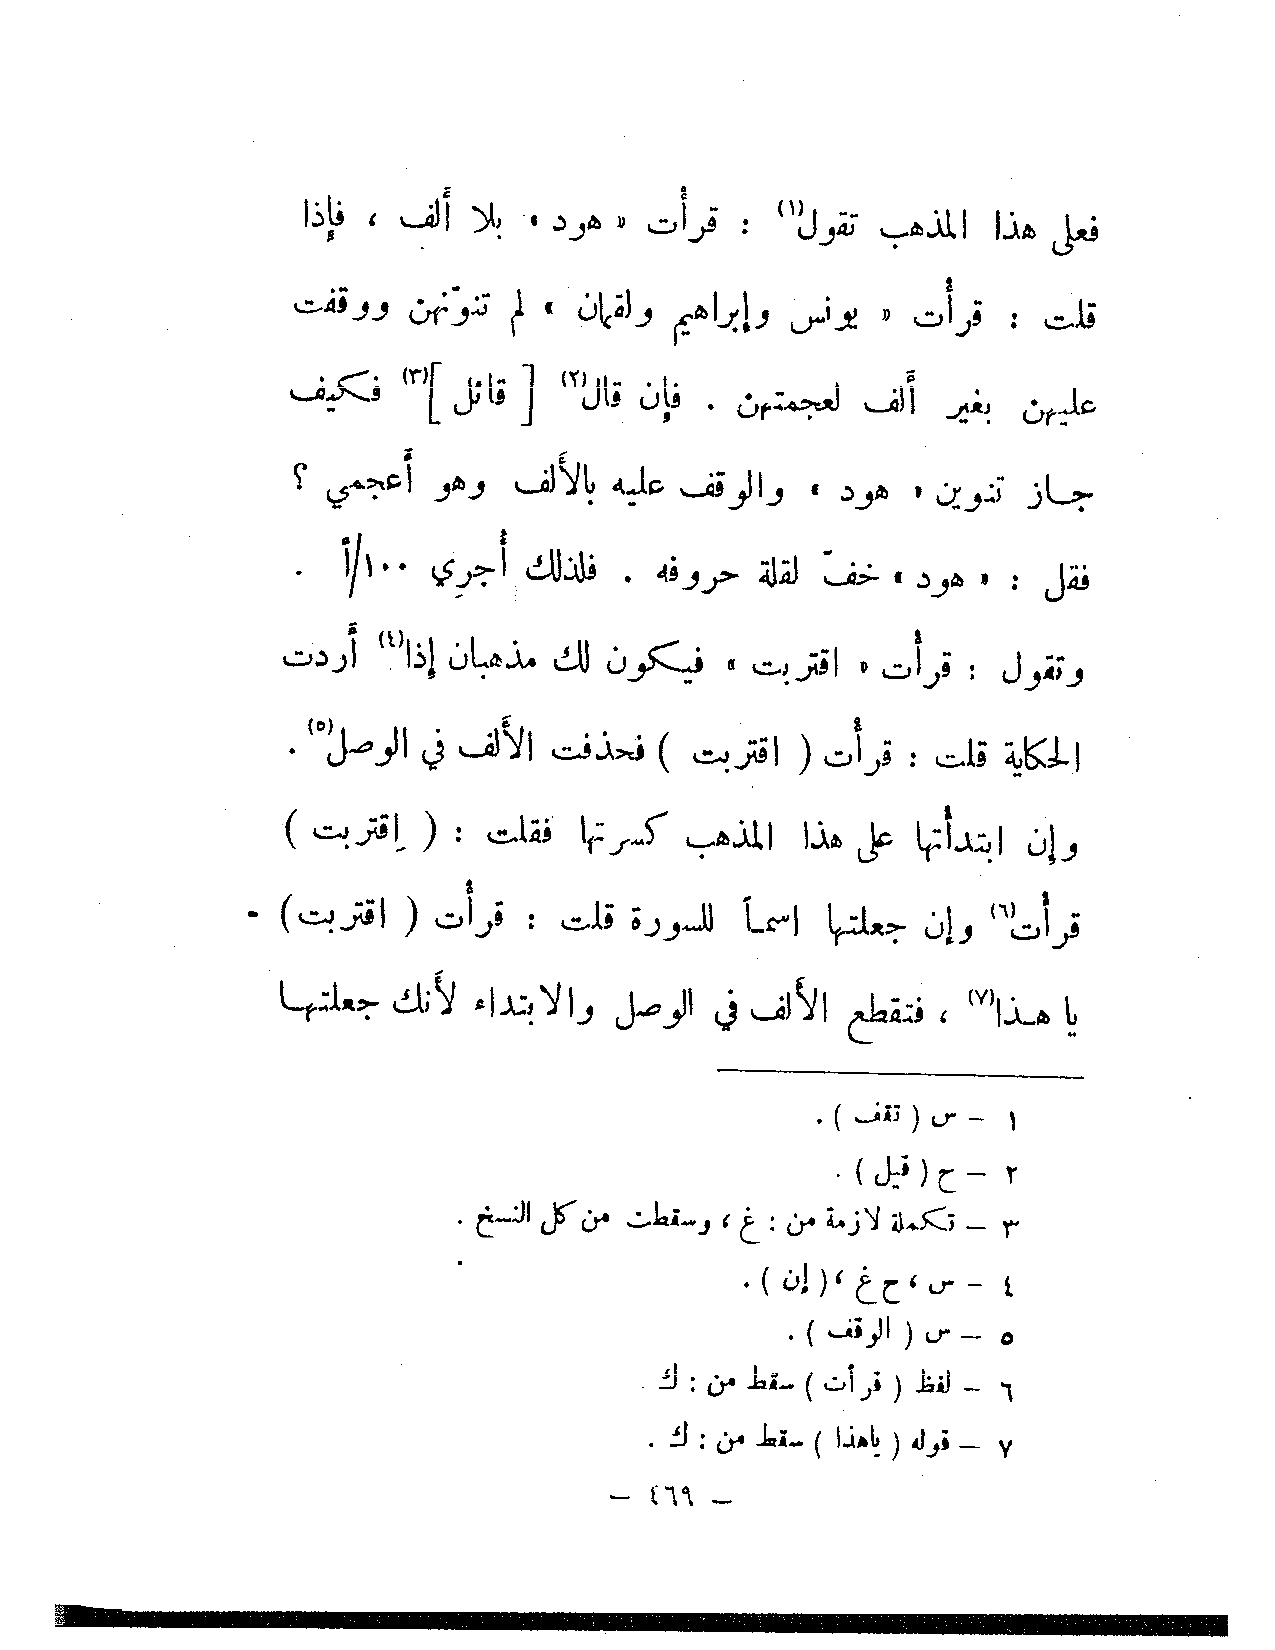 فعلى هذا المذهب تقول(١) : قرأت « هود » بلا ألف ، فإذا
قلت : قرأت « يونس وإبراهيم ولقمان » لم تنوّنهن ووقفت
عليهن بغير ألف لعجمتهن . فإن قال(٢) [ قائل ](٣) فكيف
جاز تنوين « هود » والوقف عليه بالألف وهو أعجمي ؟
فقل : « هود » خفّ لقلة حروفه . فلذلك أجري ١٠٠/أ .
وتقول : قرأت « اقتربت » فيكون لك مذهبان إذا(٤) أردت
الحكاية قلت : قرأت ( اقتربت ) فحذفت الألف في الوصل(٥) .
وإن ابتدأتها على هذا المذهب كسرتها فقلت : ( إقتربت )
قرأت(٦) وإن جعلتها اسماً للسورة قلت : قرأت ( اقتربت ) -
يا هذا(٧) ، فتقطع الألف في الوصل والابتداء لأنك جعلتها
١ – س ( تقف ) .
٢ – ح ( قيل ) .
٣ – تكملة لازمة من : غ ، وسقطت من كل النسخ .
٤ – س ، ح غ ، ( إن ) .
٥ – س ( الوقف ) .
٦ – لفظ ( قرأت ) سقط من : ك
٧ – قوله ( ياهذا ) سقط من : ك .
– ٤٦٩ –